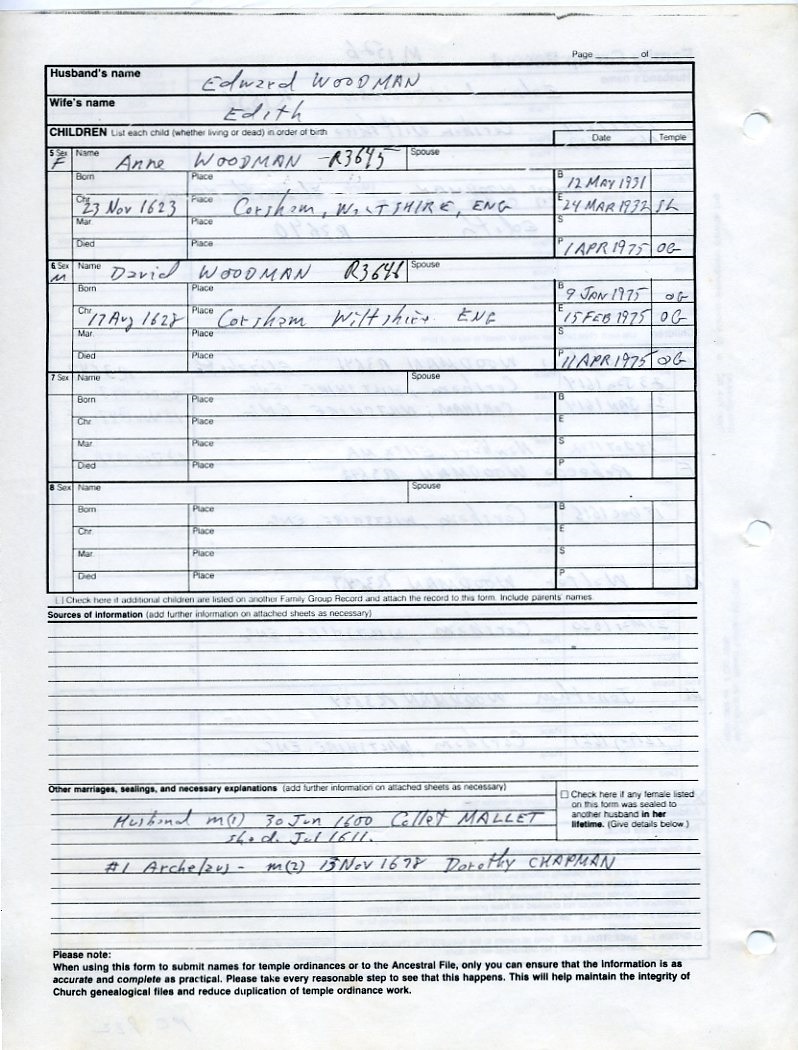 Page ______ of ______
Husband's name Edward WOODMAN
Wife's name Edith
CHILDREN List each child (whether living or dead) in order of birth Date Temple
5 Sex F Name Anne WOODMAN R3645 Spouse
Born Place B 12 MAY 1931
Chr. 23 Nov 1623 Place Corsham, WILTSHIRE, ENG E 24 MAR 1932 SL
Mar. Place S
Died Place P 1 APR 1975 OG
6 Sex M Name David WOODMAN R3646 Spouse
Born Place B 9 JAN 1975 OG
Chr. 17 Aug 1628 Place Corsham Wiltshire ENG E 15 FEB 1975 OG
Mar. Place S
Died Place P 11 APR 1975 OG
7 Sex Name Spouse
Born Place B
Chr. Place E
Mar. Place S
Died Place P
8 Sex Name Spouse
Born Place B
Chr. Place E
Mar. Place S
Died Place P
Check here if additional children are listed on another Family Group Record and attach the record to this form. Include parents' names.
Sources of information (add further information on attached sheets as necessary)
Other marriages, sealings, and necessary explanations (add further information on attached sheets as necessary)
Check here if any female listed
on this form was sealed to
another husband in her
lifetime. (Give details below.)
Husband m(1) 30 Jun 1600 Collet MALLET
she d. Jul 1611.
#1 Archelaus - m(2) 13 Nov 1678 Dorothy CHAPMAN
Please note:
When using this form to submit names for temple ordinances or to the Ancestral File, only you can ensure that the information is as
accurate and complete as practical. Please take every reasonable step to see that this happens. This will help maintain the integrity of
Church genealogical files and reduce duplication of temple ordinance work.